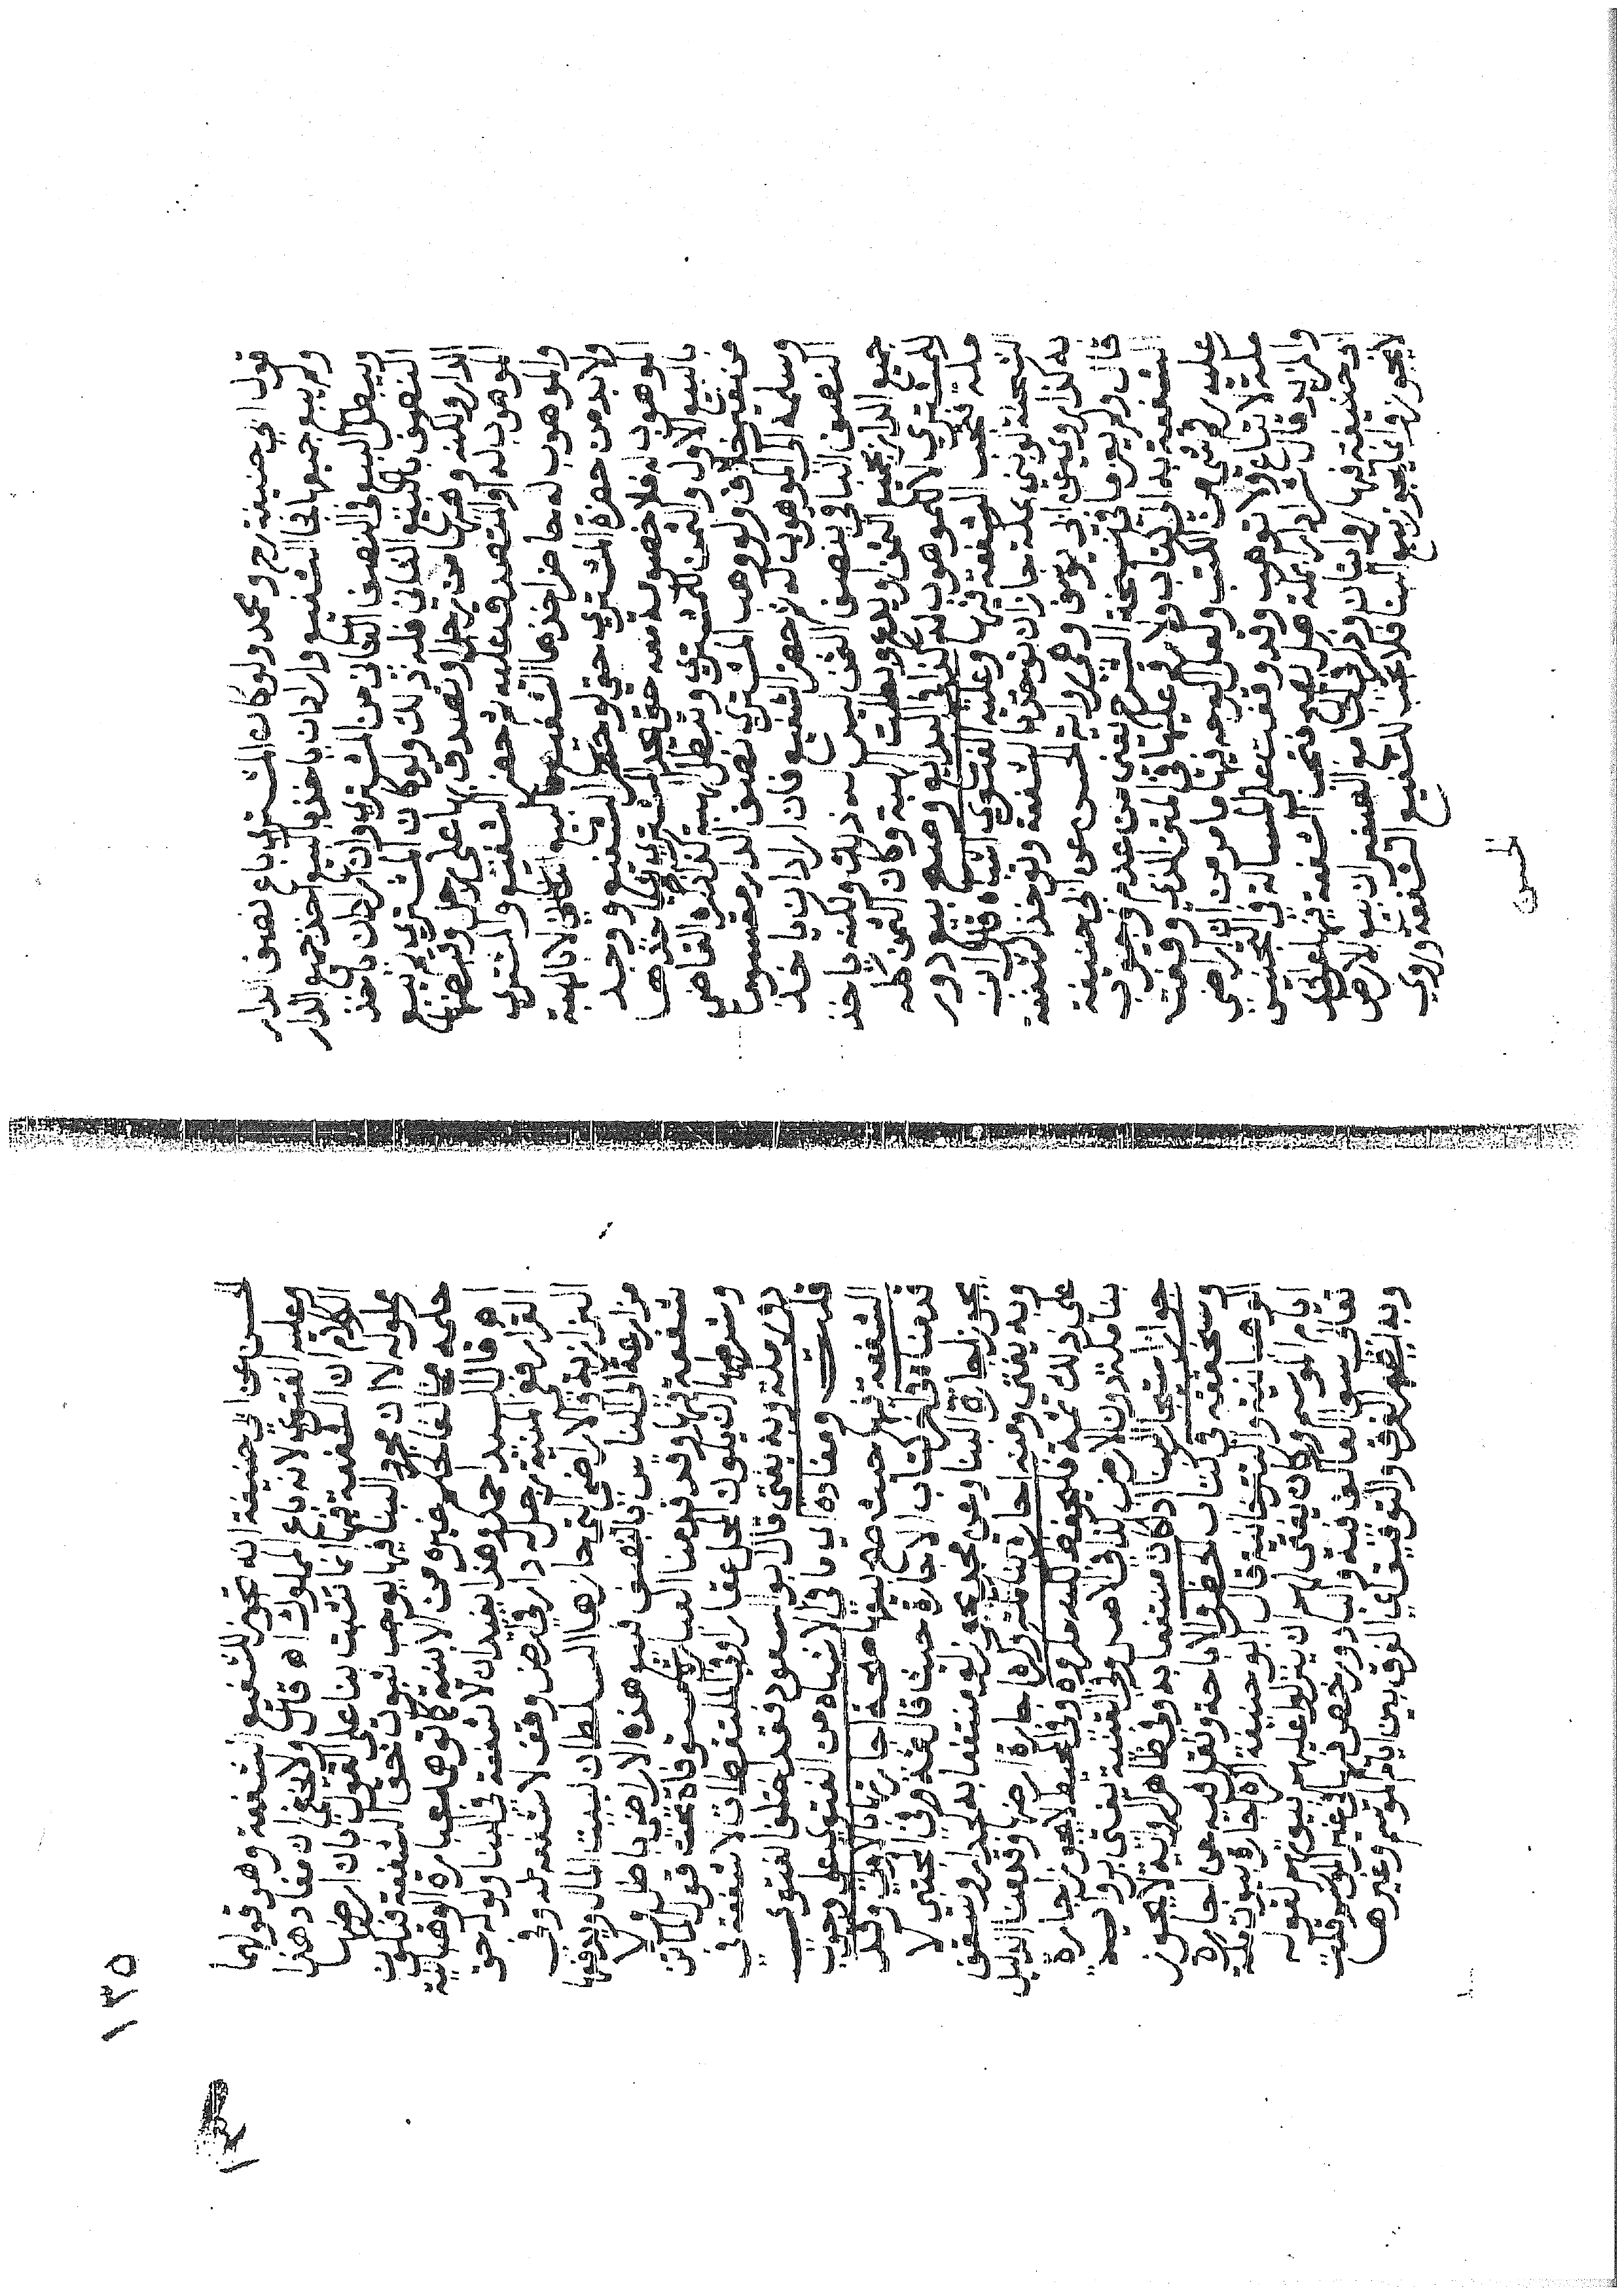 قول ابي حنيفة رح ومحمد ولو كان المشتري باع نصف الدار
ولم يبع جميعها فجا الشفيع واراد ان ياخذ بالبيع الاول اخذ جميع الدار
ويبطل البيع في النصف الثاني من المشتري وان اراد ان ياخذ
النصف بالبيع الثاني فله ذلك ولو كان المشتري لم يبع
الدار ولكنه وهبها من رجل او تصدق بها على رجل وقبضها
الموهوب له او المتصدق عليه ثم حضر الشفيع والمشتري
والموهوب له حاضر اخذها الشفيع بالبيع لا بالهبة
ولا بد من حضرة المشتري حتى لو حضر الشفيع ووجد
الموهوب له فلا خصومة معه حتى يجد المشتري فياخذها
بالبيع الاول والثمن للمشتري وتبطل الهبة كذا ذكره القاضي
من غير خلاف ولو وهب المشتري نصف الدار مقسوما
وسلمه الى الموهوب له ثم حضر الشفيع فان اراد ان ياخذ
النصف الباقي بنصف الثمن ليس له ذلك ولكنه ياخذ
جميع الدار بجميع الثمن او يدع وبطلت الهبة وكان الثمن كله
للمشتري لا للموهوب له كذا في البدايع وصح بيع دور
مكة فتجب الشفعة فيها وعليه الفتوى اشباه قال ابن
الشحنة لو بني بمكة جاز ان تؤخذ بالشفعة وتؤخذ الشفعة
به كذا روي عن ابي يوسف وهي رواية الحسن عن ابي حنيفة
قال ولم يعز ما في نسخة الشرح لغني من عدم وجوب
الشفعة به الى كتاب ولا رقم عليها في المتن الذي وقفت
عليه رقم شي من الكتب ولعل الوجه فيها ما مر من ان اراضي
مكة لا تباع ولا توهب وقد وقفت على المسالة في التجنيس
والمزيد وقال شرا دار بمكة هل يصح فتجب الشفعة فيها عن
ابي حنيفة فيها روايتان وذكر في الجامع الصغير ان بيع الارض
لا يجوز وانما يجوز بيع البنا فلا تجب للشفيع الشفعة وروي
الحسن
١٣٥
الحسن عن ابي حنيفة انه تجوز للشفيع الشفعة وهو قولهما
وعليه الفتوى لانه باع المملوك اه قال ولا يخفى ان مفاد هذا
الكلام ان الشفعة فيها انما تثبت بناء على القول بان ارضها
مملوكه لا ان مجرد البنا فيها يوجب ثبوت حق الشفعة فتكون
حكمه مخالفا لحكم غيره من الابنية كما توهمه عبارة الوهبانية
اه قال السيد احمد وهذا يفيد ان لا شفعة في البنا ولو له حق
القرار ففي المنية رجل له دار في ارض وقف لا شفعة له وفي
البزازية والاراضي التي حازها السلطان لبيت المال ويدفعها
مزارعة الى الناس بالنصف فبيع هذه الاراضي باطل ولا
شفعة فيها وقد قدمنا العبارة مستوفاة تحت قول الماتن
وشرطها ان يكون المحل عقارا وفي الملتقطات لا شفعة في
دور مكة وبه يفتى قال ابو السعود فقد اختلف الفتوى
قلت ومفاده اي ما في الاشباه من الفتوى على وجوب
الشفعة فيها حيث صح بيعها صحة اجارتها بالاولى وقد
قدمناه في اخر كتاب الاجارة حيث قال ثمة وفي المجتبى لا
يجوز اجارة البنا وعن محمد يجوز لو منتفعا به كجدار وسقف
وبه يفتى ومنه اجارة بنا مكة وكره اجارة ارضها وقدمنا الدليل
على ذلك ثمة فليحفظ لكنه مكروه وفي المحيط لا يجوز اجارة
بنا مكة دون الارض كذا في الاصل وفي القنية يفتى برواية
جواز استجار البنا اذا كان منتفعا به وفي ظاهر الرواية لا يجوز
وسنحققه في كتاب الحظر والاباحة ونقل فيه عن اجارة
الوهبانية والتترخانية قال ابو حنيفة اكره اجارة بيوت مكة
ايام الموسم وكان يفتي لهم ان ينزلوا عليهم في بيوتهم لقوله
تعالى سواء العاكف فيه والباد ورخص فيها في غير الموسم قلت
وبه يظهر الفرق والتوفيق اي الفرق بين ايام الموسم وغيرها